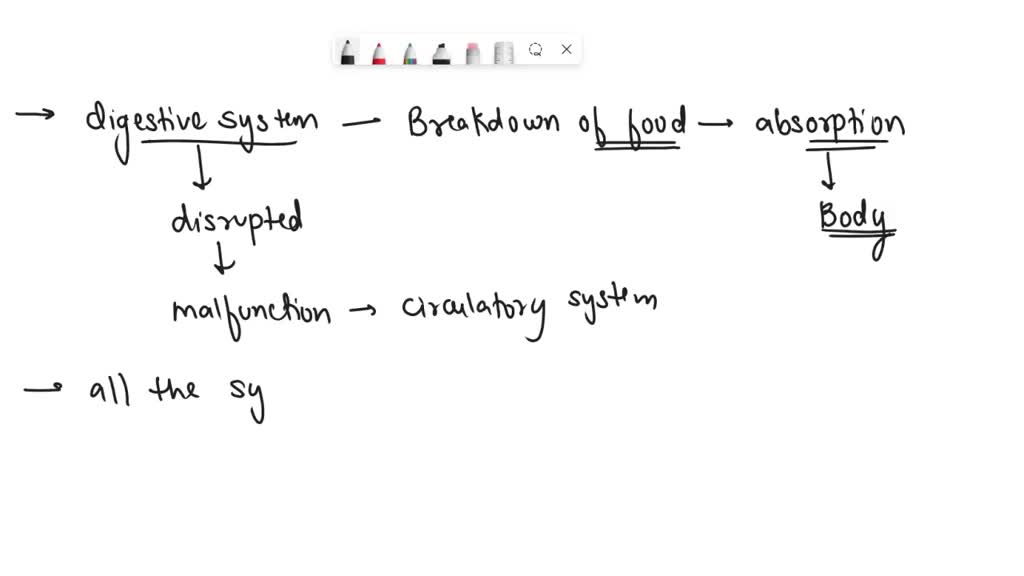 → digestive system — Breakdown of food → absorption
↓ ↓
disrupted Body
↓
malfunction → circulatory system
→ all the sy